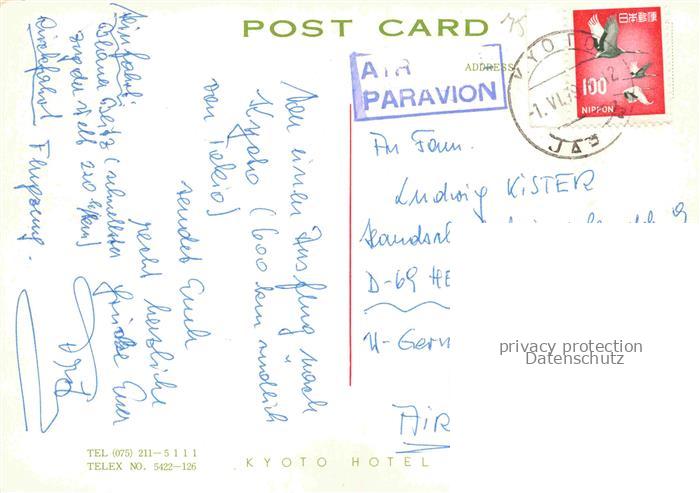 POST CARD
75
AIR
PARAVION
ADDRESS
日本郵便
100
NIPPON
KYOTO
-1. VI.
JAPAN
An Fam.
Ludwig KISTER
D-69 HE
W-Germ
AIR
Hinfahrt
Blauer Blitz (schnellster
Zug der Welt 210 km/h)
Rückfahrt Flugzeug.
Von einem Ausflug nach
Kyoto (600 km südlich
von Tokio)
sendet Euch
recht herzliche
Grüße Euer
TEL (075) 211-5111
TELEX NO. 5422-126
KYOTO HOTEL
privacy protection
Datenschutz